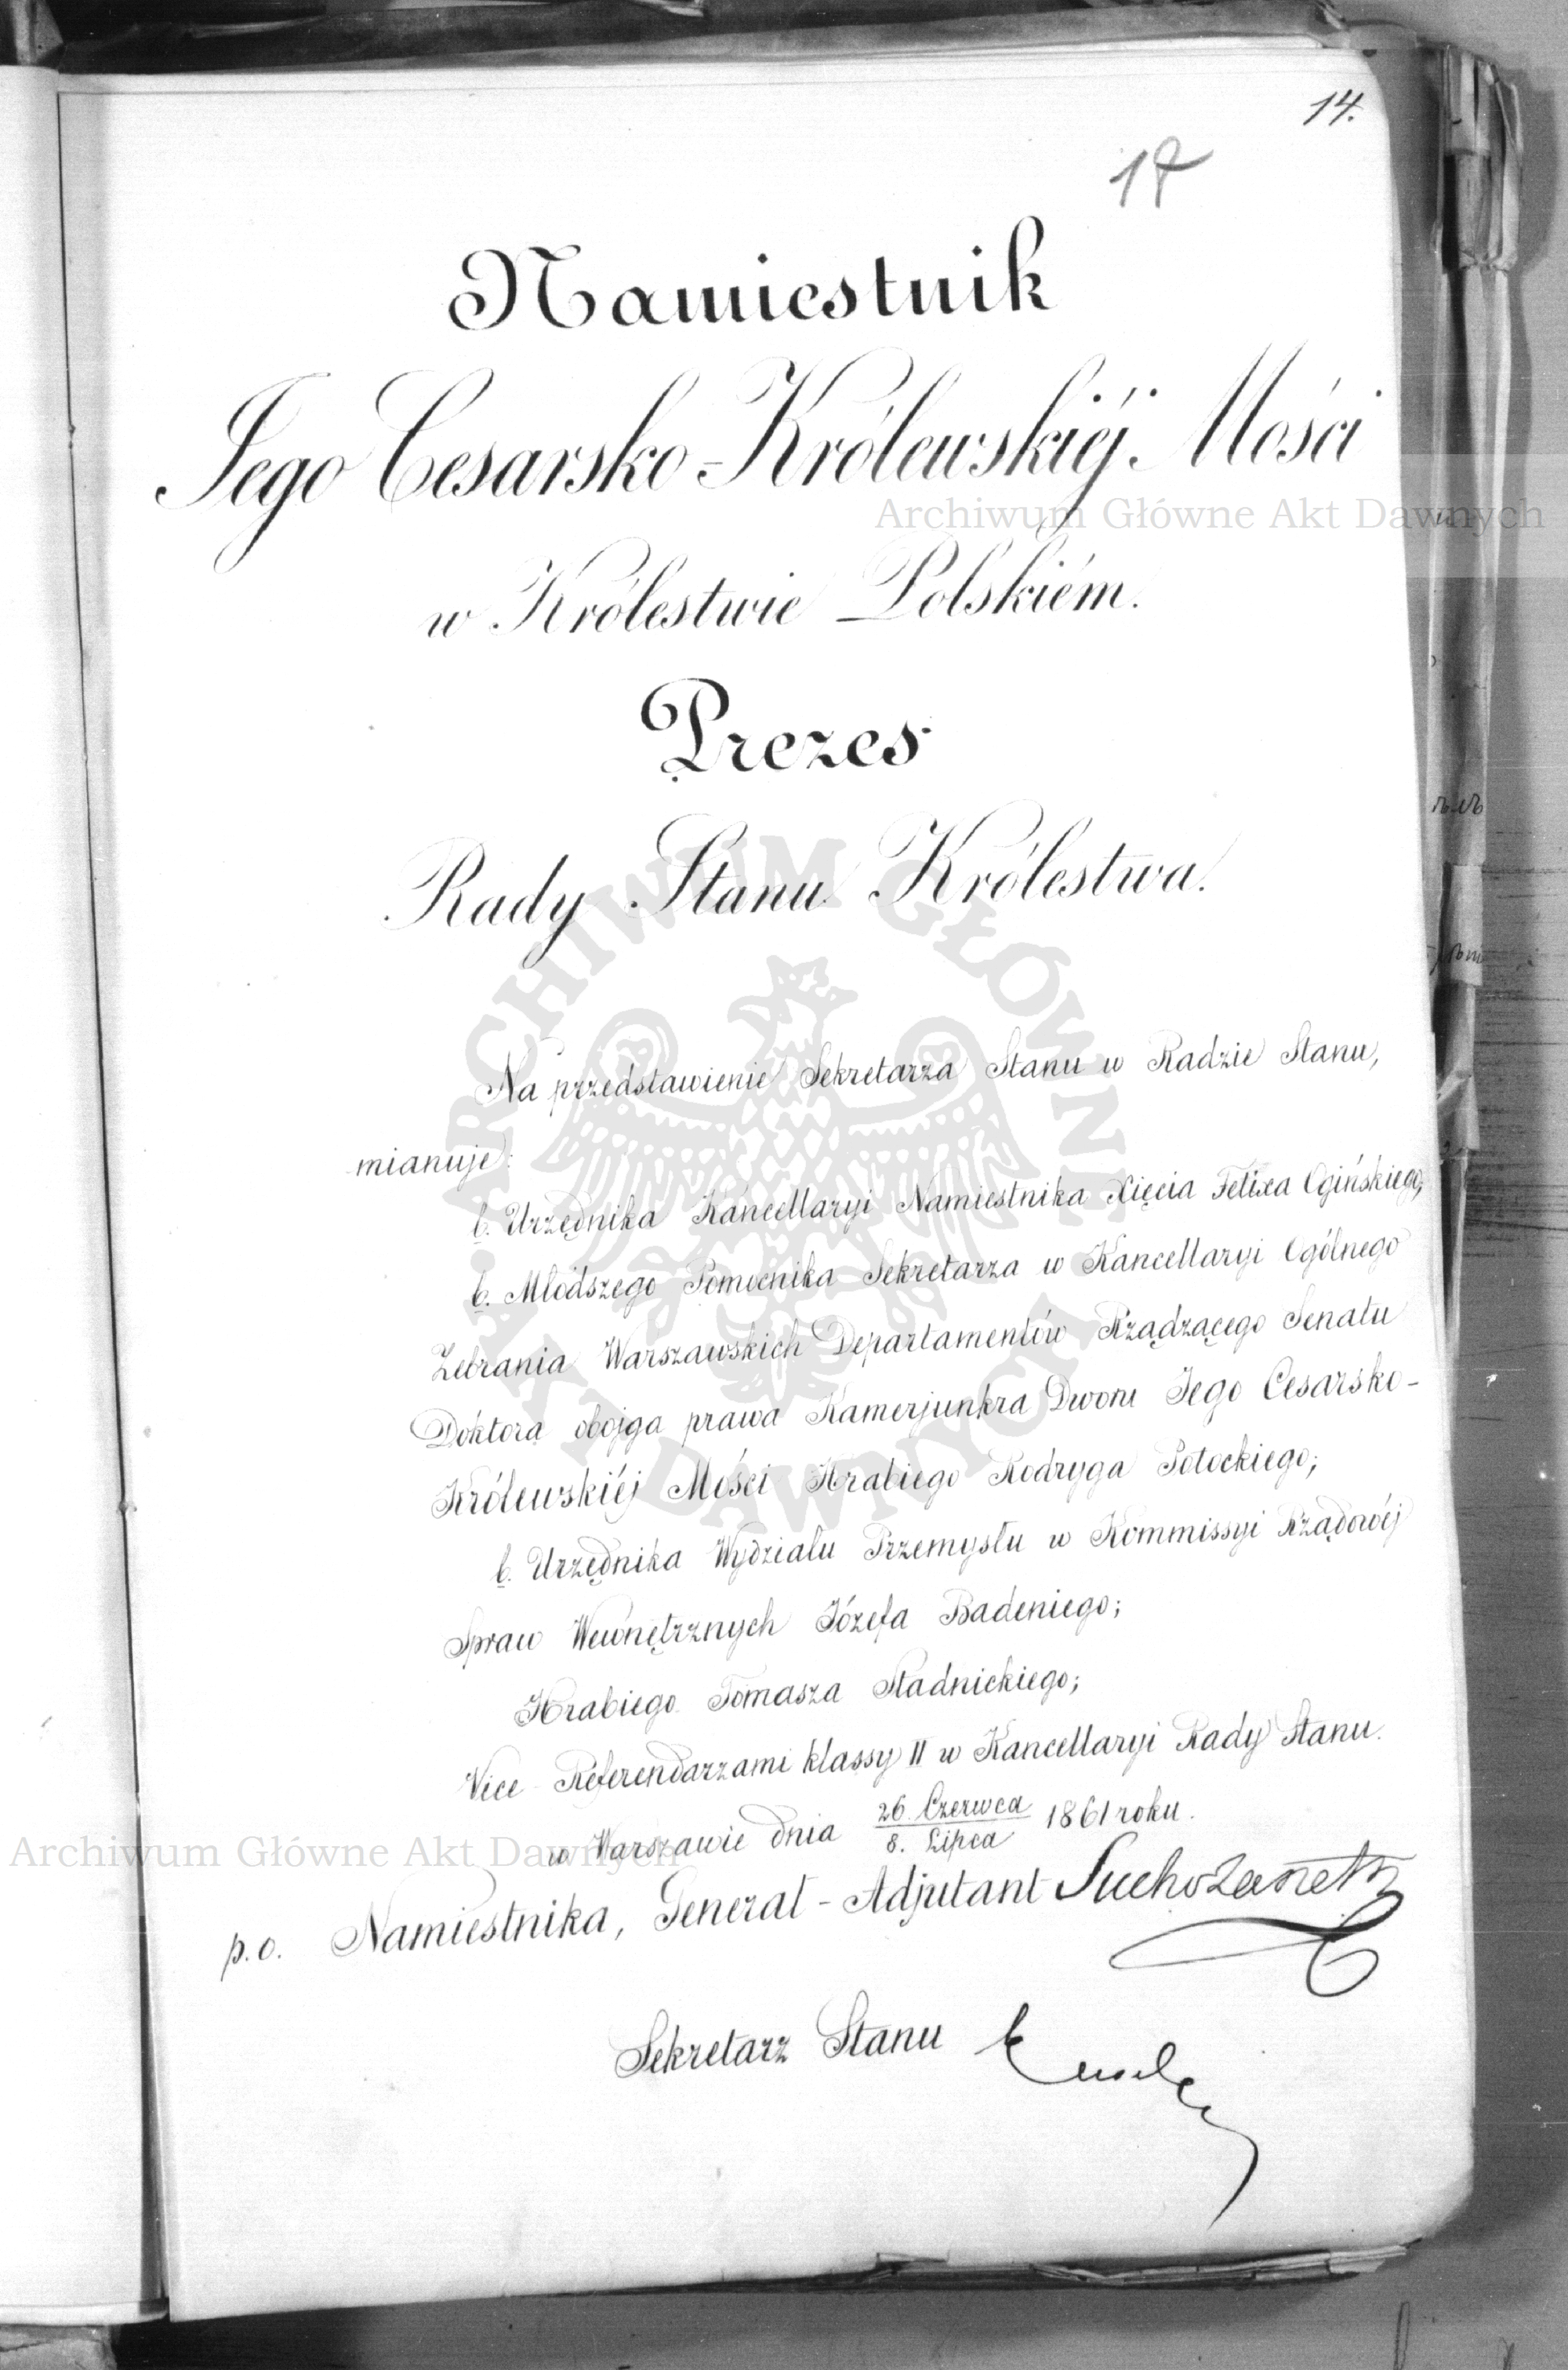 14.
17
Namiestnik
Jego Cesarsko-Królewskiéj Mości
w Królestwie Polskiém.
Prezes
Rady Stanu Królestwa.
Na przedstawienie Sekretarza Stanu w Radzie Stanu,
mianuje:
b. Urzędnika Kancellaryi Namiestnika Xięcia Felixa Ogińskiego,
b. Młodszego Pomocnika Sekretarza w Kancellaryi Ogólnego
Zebrania Warszawskich Departamentów Rządzącego Senatu
Doktora obojga prawa Kamerjunkra Dworu Jego Cesarsko-
Królewskiéj Mości Hrabiego Rodryga Potockiego;
b. Urzędnika Wydziału Przemysłu w Kommissyi Rządowéj
Spraw Wewnętrznych Józefa Badeniego;
Hrabiego Tomasza Stadnickiego;
Vice-Referendarzami klassy II w Kancellaryi Rady Stanu.
w Warszawie dnia 26 Czerwca / 8. Lipca 1861 roku.
p.o. Namiestnika, Generał-Adjutant Suchozanett
Sekretarz Stanu
Archiwum Główne Akt Dawnych
ARCHIWUM GŁÓWNE AKT DAWNYCH
Archiwum Główne Akt Dawnych